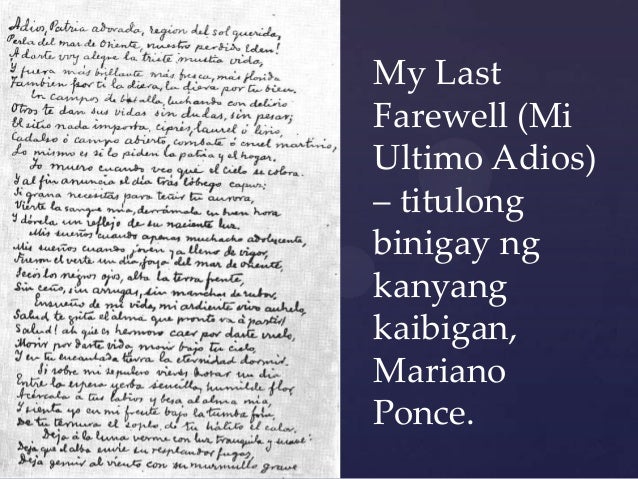 Adios, Patria adorada, region del sol querida,
Perla del mar de Oriente, nuestro perdido Eden!
A darte voy alegre la triste mustia vida,
Y fuera más brillante más fresca, más florida
Tambien por ti la diera, la diera por tu bien.
En campos de batalla, luchando con delirio
Otros te dan sus vidas sin dudas, sin pesar;
El sitio nada importa, ciprés, laurel ó lirio,
Cadalso ó campo abierto, combate ó cruel martirio,
Lo mismo es si lo piden la patria y el hogar.
Yo muero cuando veo que el cielo se colora
Y al fin anuncia el día tras lóbrego capuz;
Si grana necesitas para teñir tu aurora,
Vierte la sangre mia, derrámala en buen hora
Y dórela un reflejo de su naciente luz.
Mis sueños cuando apenas muchacho adolescente,
Mis sueños cuando joven ya lleno de vigor,
Fueron el verte un dia, joya del mar de oriente,
Secos los negros ojos, alta la tersa frente,
Sin ceño, sin arrugas, sin manchas de rubor.
Ensueño de mi vida, mi ardiente vivo anhelo,
Salud te grita el alma que pronto va á partir!
Salud! ah que es hermoso caer por darte vuelo,
Morir por darte vida, morir bajo tu cielo,
Y en tu encantada tierra la eternidad dormir.
Si sobre mi sepulcro vieres brotar un dia
Entre la espesa yerba sencilla, humilde flor,
Acércala a tus labios y besa al alma mia,
Y sienta yo en mi frente bajo la tumba fria,
De tu ternura el soplo, de tu hálito el calor.
Deja á la luna verme con luz tranquila y suave:
Deja que el alba envie su resplandor fugaz,
Deja gemir al viento con su murmullo grave
My Last
Farewell (Mi
Ultimo Adios)
– titulong
binigay ng
kanyang
kaibigan,
Mariano
Ponce.